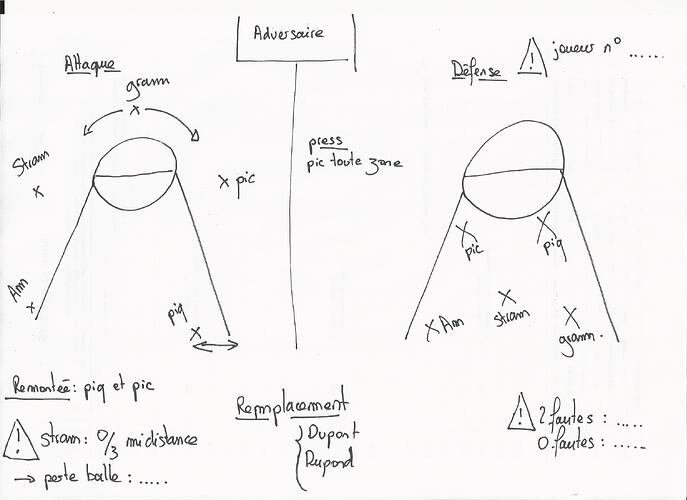 Adversaire
Attaque
Défense
! joueur n° ......
gramm
Stram
pic
press
pic toute zone
Am
piq
pic
piq
Am
stram
gramm.
Remontée: piq et pic
Remplacement
Dupont
Dupond
! Stram: 0/3 mi distance
→ perte balle : .....
! 2 fautes : .....
0 fautes : .....